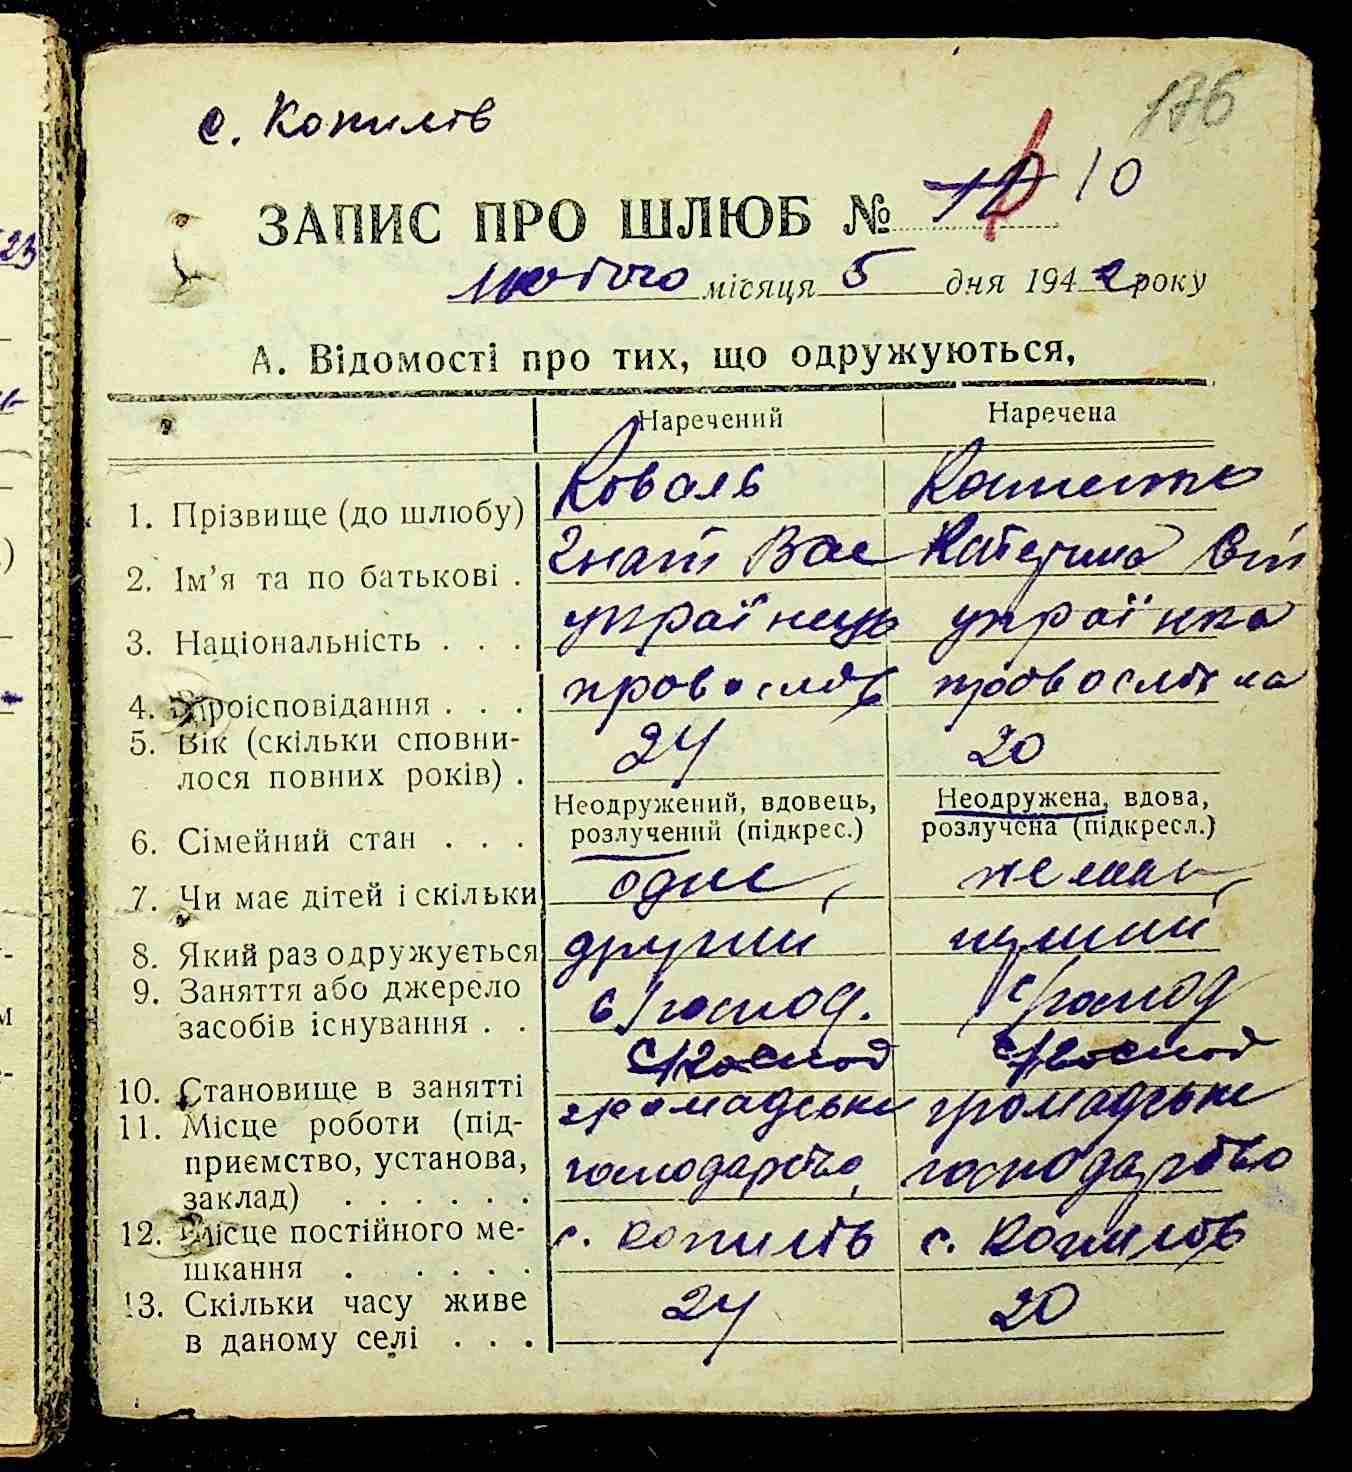 176
с. Копилів
ЗАПИС ПРО ШЛЮБ № 10
лютого місяця 5 дня 1942 року
А. Відомості про тих, що одружуються,
Наречений Наречена
1. Прізвище (до шлюбу) Коваль
2. Ім'я та по батькові . Гнат Вас Катерина
3. Національність . . . українець українка
4. Віроісповідання . . . провослав провославна
5. Вік (скільки сповни-
лося повних років) . 24 20
6. Сімейний стан . . . Неодружений, вдовець, Неодружена, вдова,
розлучений (підкрес.) розлучена (підкресл.)
7. Чи має дітей і скільки одне, не має,
8. Який раз одружується другий перший
9. Заняття або джерело
засобів існування . . с/господ. с/господ
10. Становище в занятті с/господ с/господ
11. Місце роботи (під- громадське громадське
приємство, установа, господарство, господарство
заклад) . . . . . .
12. Місце постійного ме- с. Копилів с. Копилів
шкання . . . . .
13. Скільки часу живе 24 20
в даному селі . . .